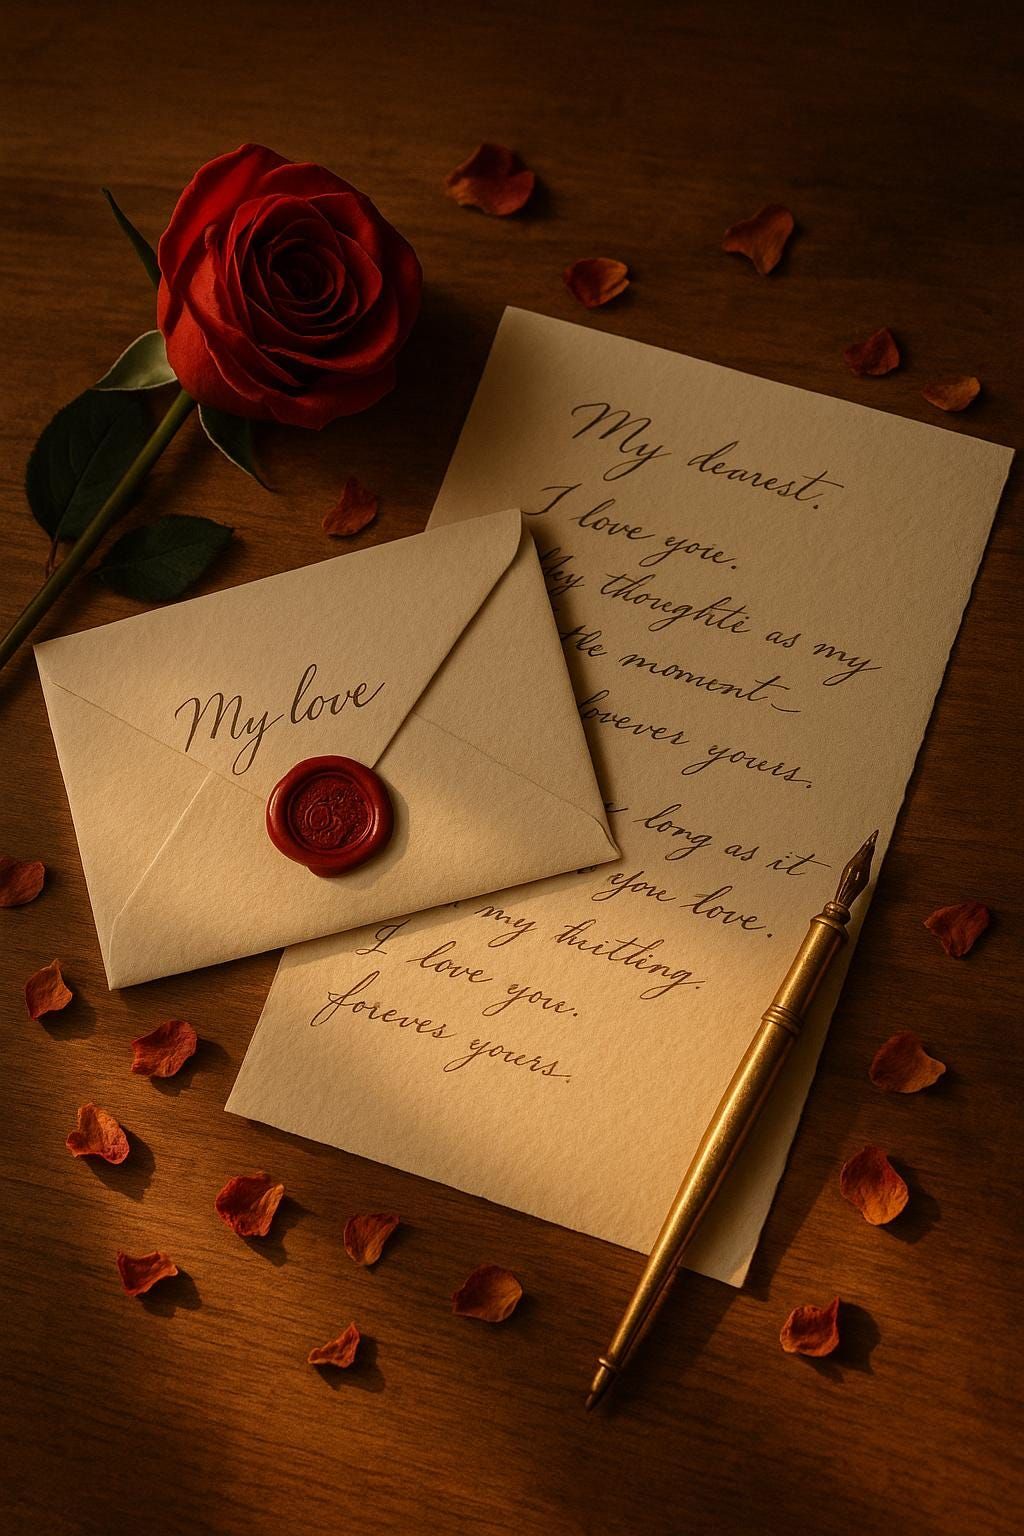 My love
My dearest.
I love you.
thoughti as my
moment—
forever yours.
long as it
you love.
my tuitling.
I love you.
foreves yours.